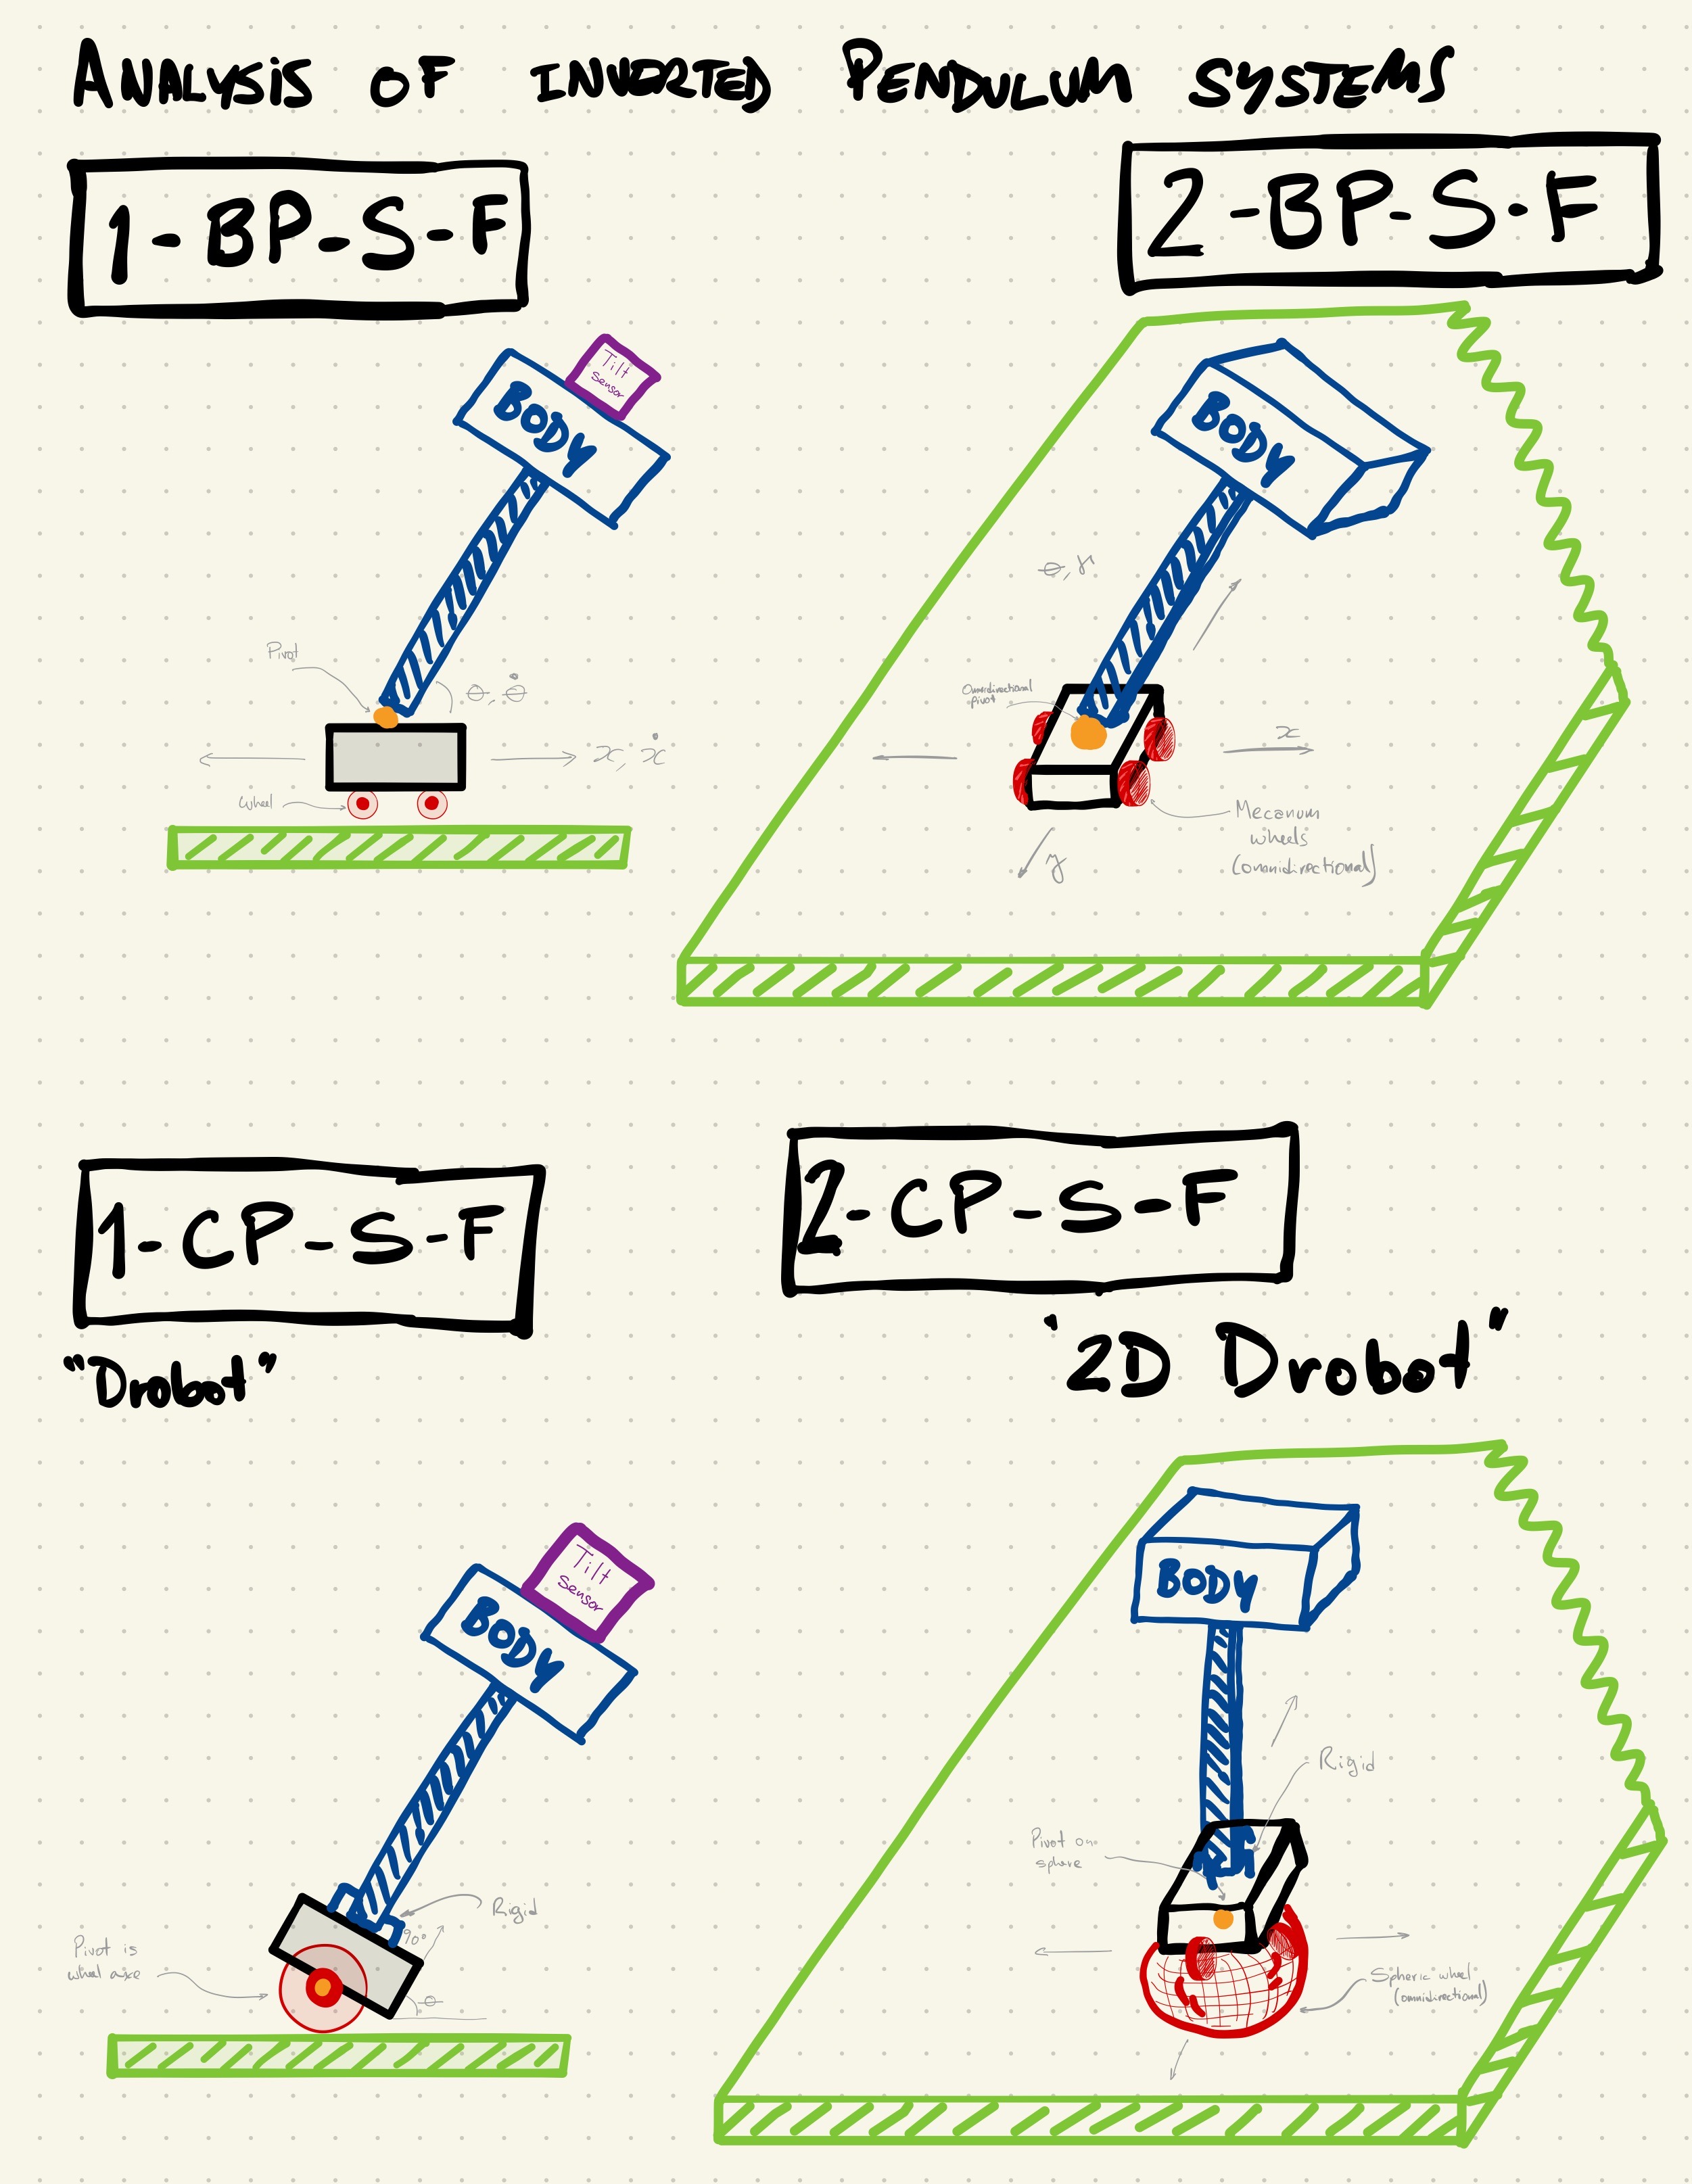 ANALYSIS OF INVERTED PENDULUM SYSTEMS
1-BP-S-F
2-BP-S-F
Tilt
Sensor
BODY
Pivot
θ, θ̇
x, ẋ
wheel
BODY
θ, γ
Omnidirectional
pivot
x
y
Mecanum
wheels
(omnidirectional)
1-CP-S-F
"Drobot"
2-CP-S-F
"2D Drobot"
Tilt
Sensor
BODY
Rigid
90°
Pivot is
wheel axe
θ
BODY
Rigid
Pivot on
sphere
Spheric wheel
(omnidirectional)